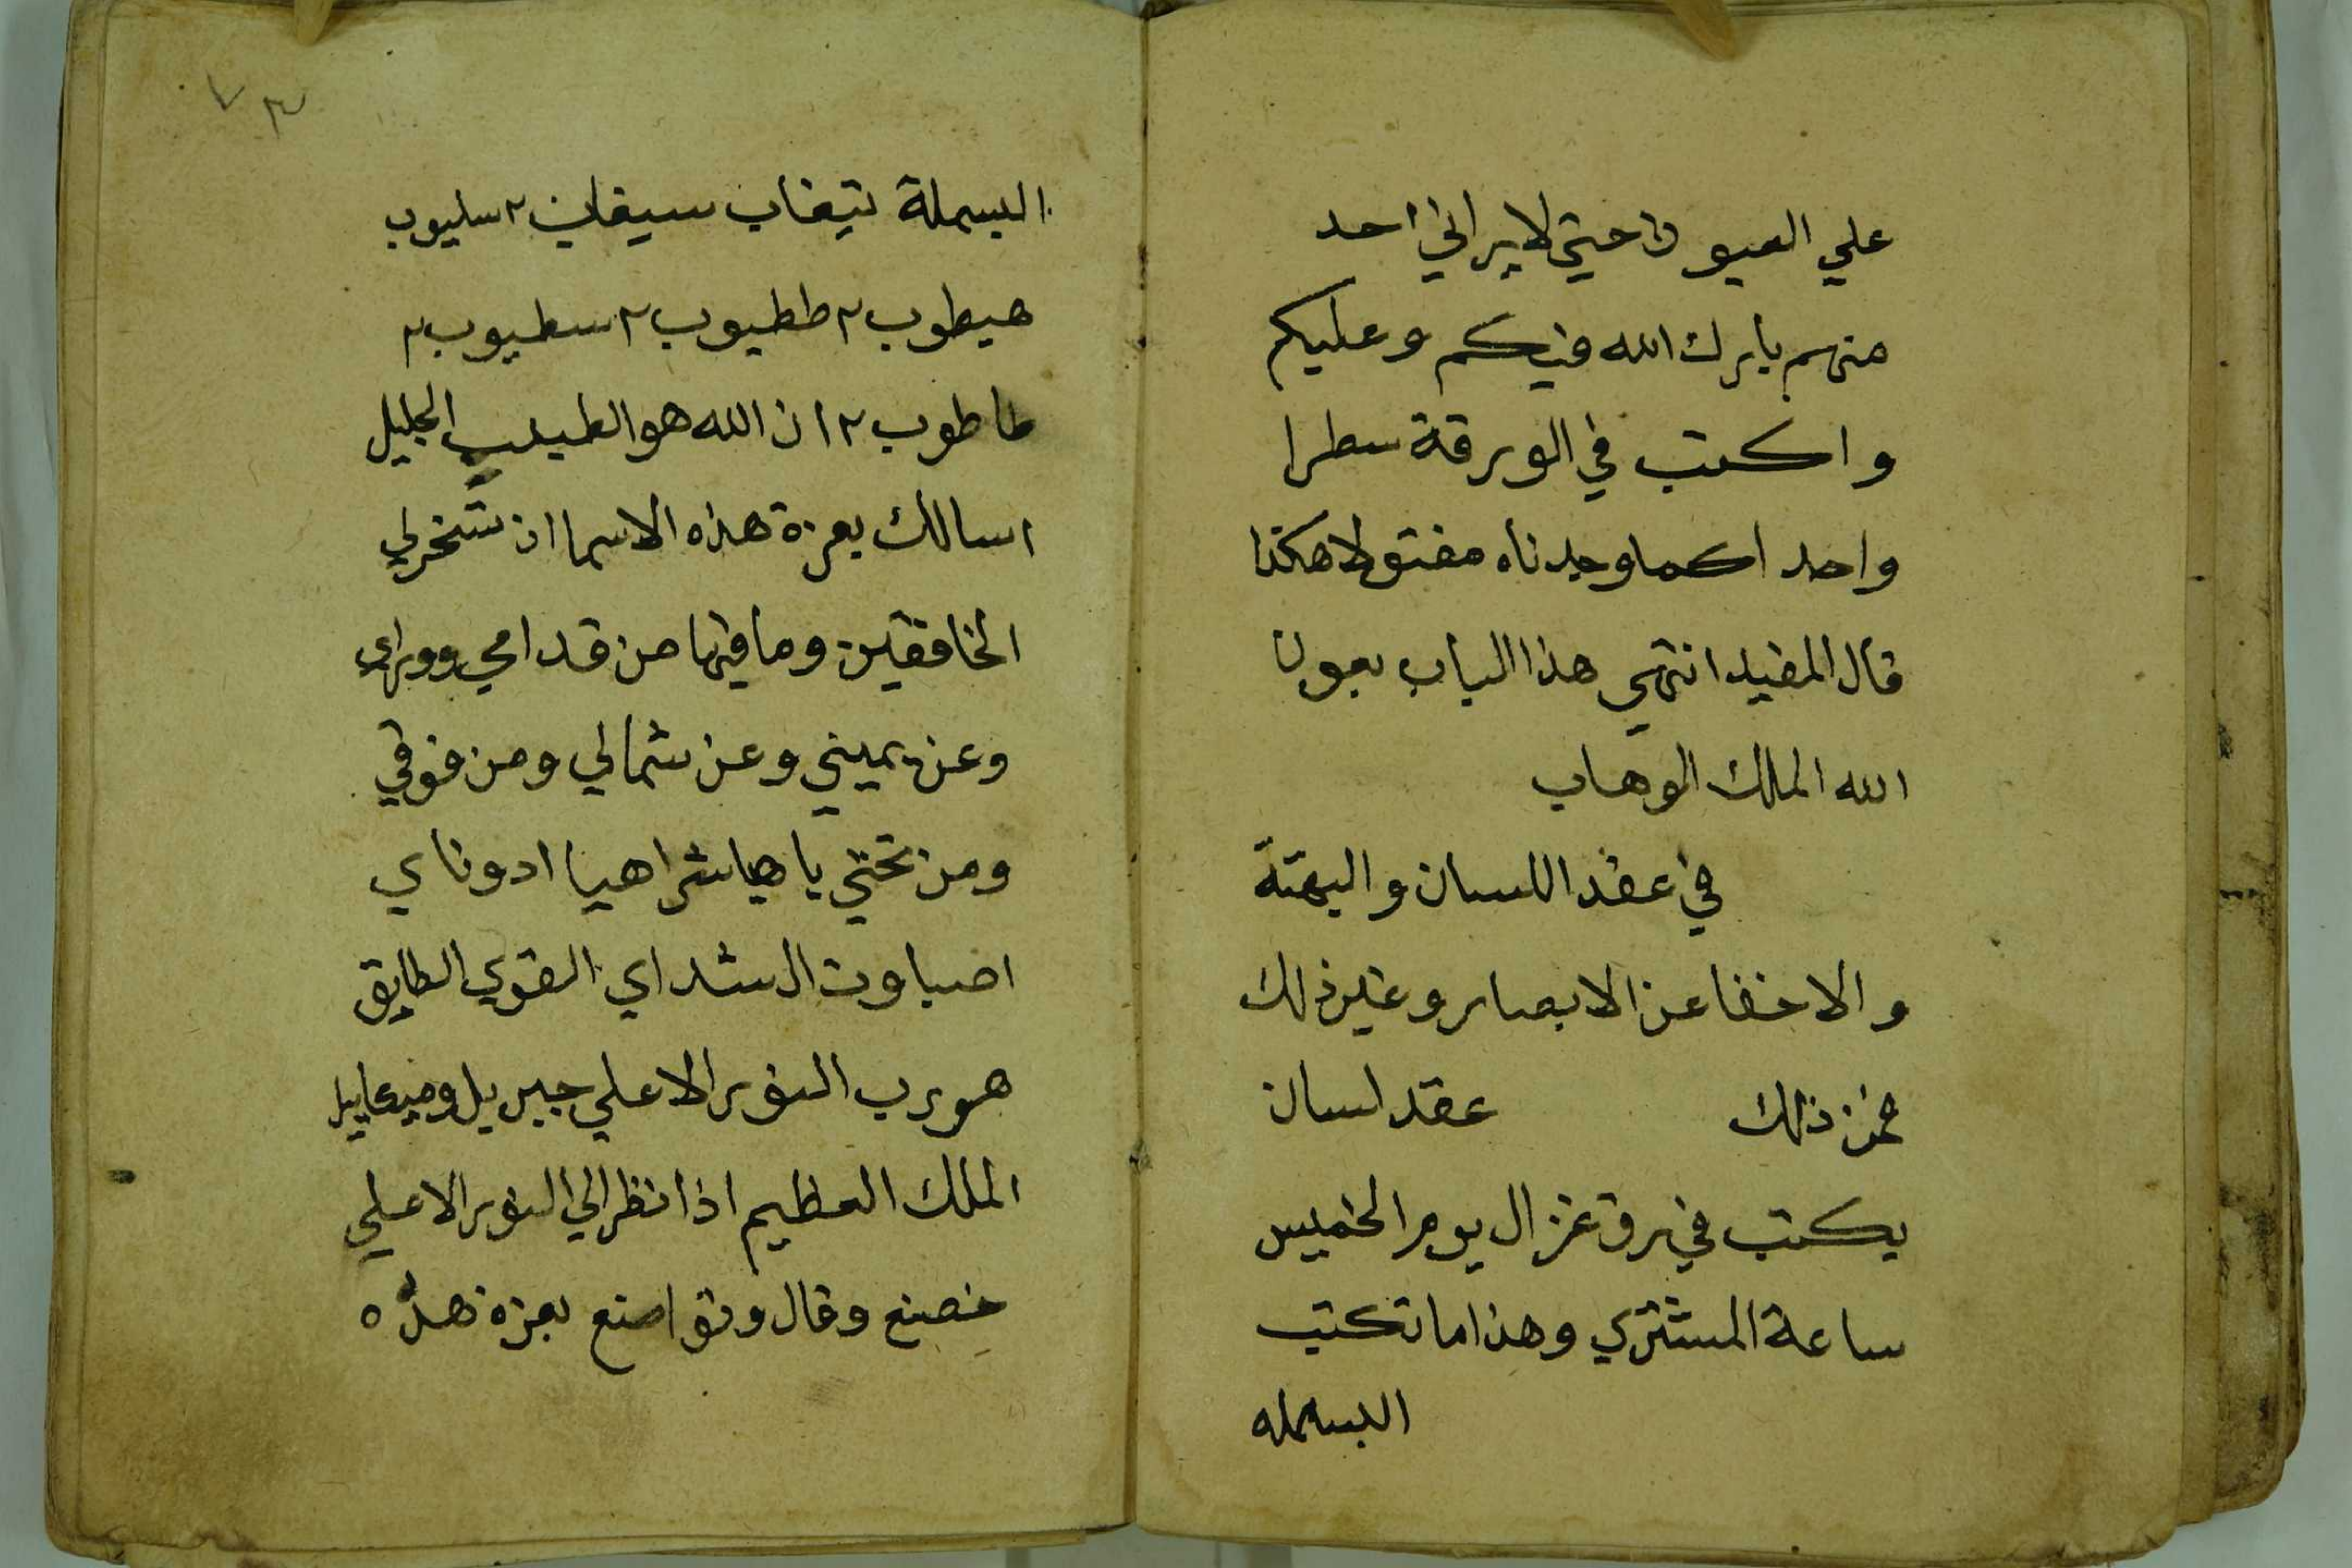 علي العيون حتي لا يراني احد
منهم بارك الله فيكم وعليكم
واكتب في الورقة سطرا
واحد اكما وجدناه مفتولا هكذا
قال المفيد انتهي هذا الباب بعون
الله الملك الوهاب
في عقد اللسان والبهتة
والاخفا عن الابصار وغير ذلك
فمن ذلك عقد لسان
يكتب في رق غزال يوم الخميس
ساعة المشتري وهذا ما تكتب
البسمله
٧٣
البسملة سليوب
هيطوب ٢ ططيوب ٢ سطيوب ٢
طاطوب ٢ ان الله هو الطبيب الجليل
اسالك بعزة هذه الاسما ان تسخر لي
الخافقين وما فيها من قدامي وورائي
وعن يميني وعن شمالي ومن فوقي
ومن تحتي يا هيا شراهيا ادوناي
اصباوت ال شداي القوي الطايق
هو رب النور الاعلي جبريل وميكاييل
الملك العظيم اذا نظر الي النور الاعلي
وقال بعزة هذه